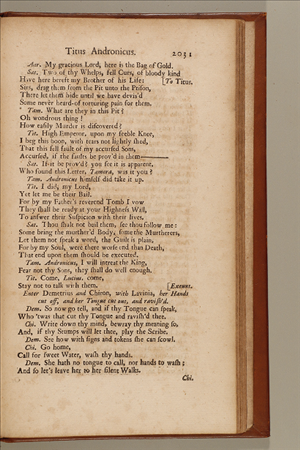 Titus Andronicus. 2031
Aar. My gracious Lord, here is the Bag of Gold.
Sat. Two of thy Whelps, fell Curs, of bloody kind
Have here bereft my Brother of his Life: [To Titus.
Sirs, drag them from the Pit unto the Prison,
There let them bide until we have devis'd
Some never heard-of torturing pain for them.
Tam. What are they in this Pit?
Oh wondrous thing!
How easily Murder is discovered?
Tit. High Emperor, upon my feeble Knee,
I beg this boon, with tears not lightly shed,
That this fell fault of my accursed Sons,
Accursed, if the faults be prov'd in them———
Sat. If it be prov'd? you see it is apparent.
Who found this Letter, Tamora, was it you?
Tam. Andronicus himself did take it up.
Tit. I did, my Lord,
Yet let me be their Bail.
For by my Father's reverend Tomb I vow
They shall be ready at your Highness Will,
To answer their Suspicion with their lives.
Sat. Thou shalt not bail them, see thou follow me:
Some bring the murther'd Body, some the Murtherers,
Let them not speak a word, the Guilt is plain,
For by my Soul, were there worse end than Death,
That end upon them should be executed.
Tam. Andronicus, I will intreat the King,
Fear not thy Sons, they shall do well enough.
Tit. Come, Lucius, come,
Stay not to talk with them. [Exeunt.
Enter Demetrius and Chiron, with Lavinia, her Hands
cut off, and her Tongue cut out, and ravish'd.
Dem. So now go tell, and if thy Tongue can speak,
Who 'twas that cut thy Tongue and ravish'd thee.
Chi. Write down thy mind, bewray thy meaning so,
And, if thy Stumps will let thee, play the Scribe.
Dem. See how with signs and tokens she can scowl.
Chi. Go home,
Call for sweet Water, wash thy hands.
Dem. She hath no tongue to call, nor hands to wash;
And so let's leave her to her silent Walks.
Chi.